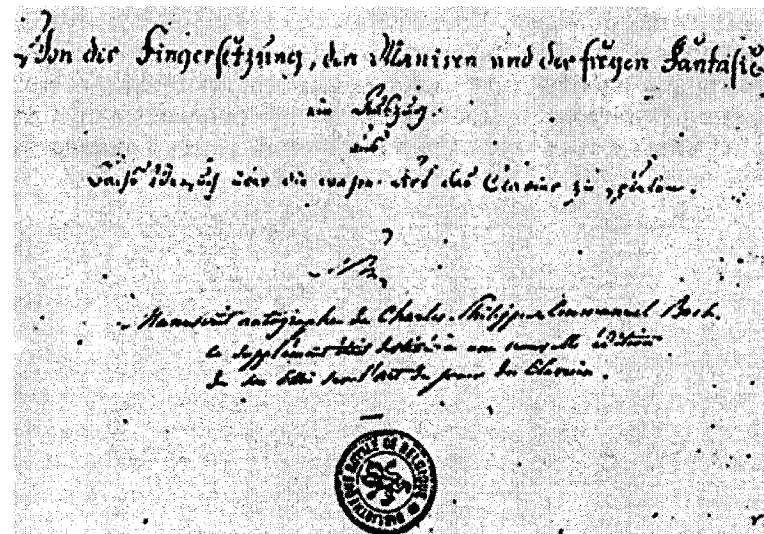 Von der Fingersetzung, den Manieren und der freyen Fantasie
ein Auszug
aus
Bachs Versuch über die wahre Art das Clavier zu spielen.
Manuscrit autographe de Charles-Philippe-Emmanuel Bach.
Ce supplément était destiné à une nouvelle édition
de son Essai sur l'art de jouer du Clavecin.
BIBLIOTHÈQUE ROYALE DE BELGIQUE